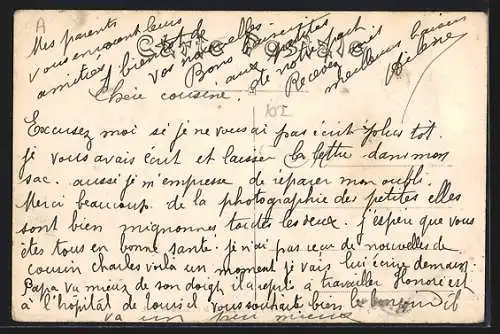 A
Mes parents
vous envoient leurs
amitiés
et bientôt de
vos nouvelles
Bons baisers
aux petites
de notre part
Recevez
meilleurs baisers
Carte Postale
Chère cousine.
Excusez moi si je ne vous ai pas écrit plus tot.
je vous avais écrit et laisser la lettre dans mon
sac. aussi je m'empresse de réparer mon oubli.
Merci beaucoup de la photographie des petites elles
sont bien mignonnes toutes les deux. j'espère que vous
êtes tous en bonne santé. je n'ai pas reçu de nouvelles de
cousin Charles voila un moment je vais lui écrire demain
Papa va mieux de son doigt il a repris à travailler Honoré est
à l'hôpital de vous souhaite bien le bonjour
va un peu mieux